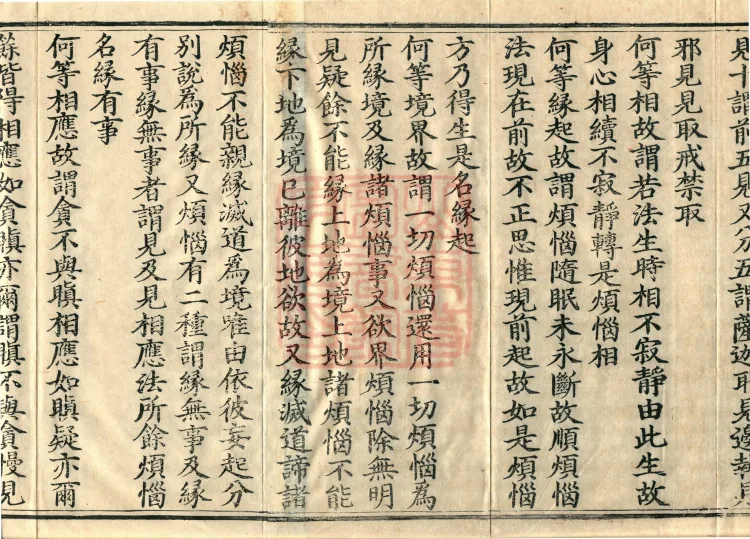 見十謂前五見又分五謂薩迦耶見邊執見
邪見見取戒禁取
何等相故謂若法生時相不寂靜由此生故
身心相續不寂靜轉是煩惱相
何等緣起故謂煩惱隨眠未永斷故順煩惱
法現在前故不正思惟現前起故如是煩惱
方乃得生是名緣起
何等境界故謂一切煩惱還用一切煩惱為
所緣境及緣諸煩惱事又欲界煩惱除無明
見疑餘不能緣上地為境上地諸煩惱不能
緣下地為境已離彼地欲故又緣滅道諦諸
煩惱不能親緣滅道為境唯由依彼妄起分
別說為所緣又煩惱有二種謂緣無事及緣
有事緣無事者謂見及見相應法所餘煩惱
名緣有事
何等相應故謂貪不與瞋相應如瞋疑亦爾
餘皆得相應如貪瞋亦爾謂瞋不與貪慢見